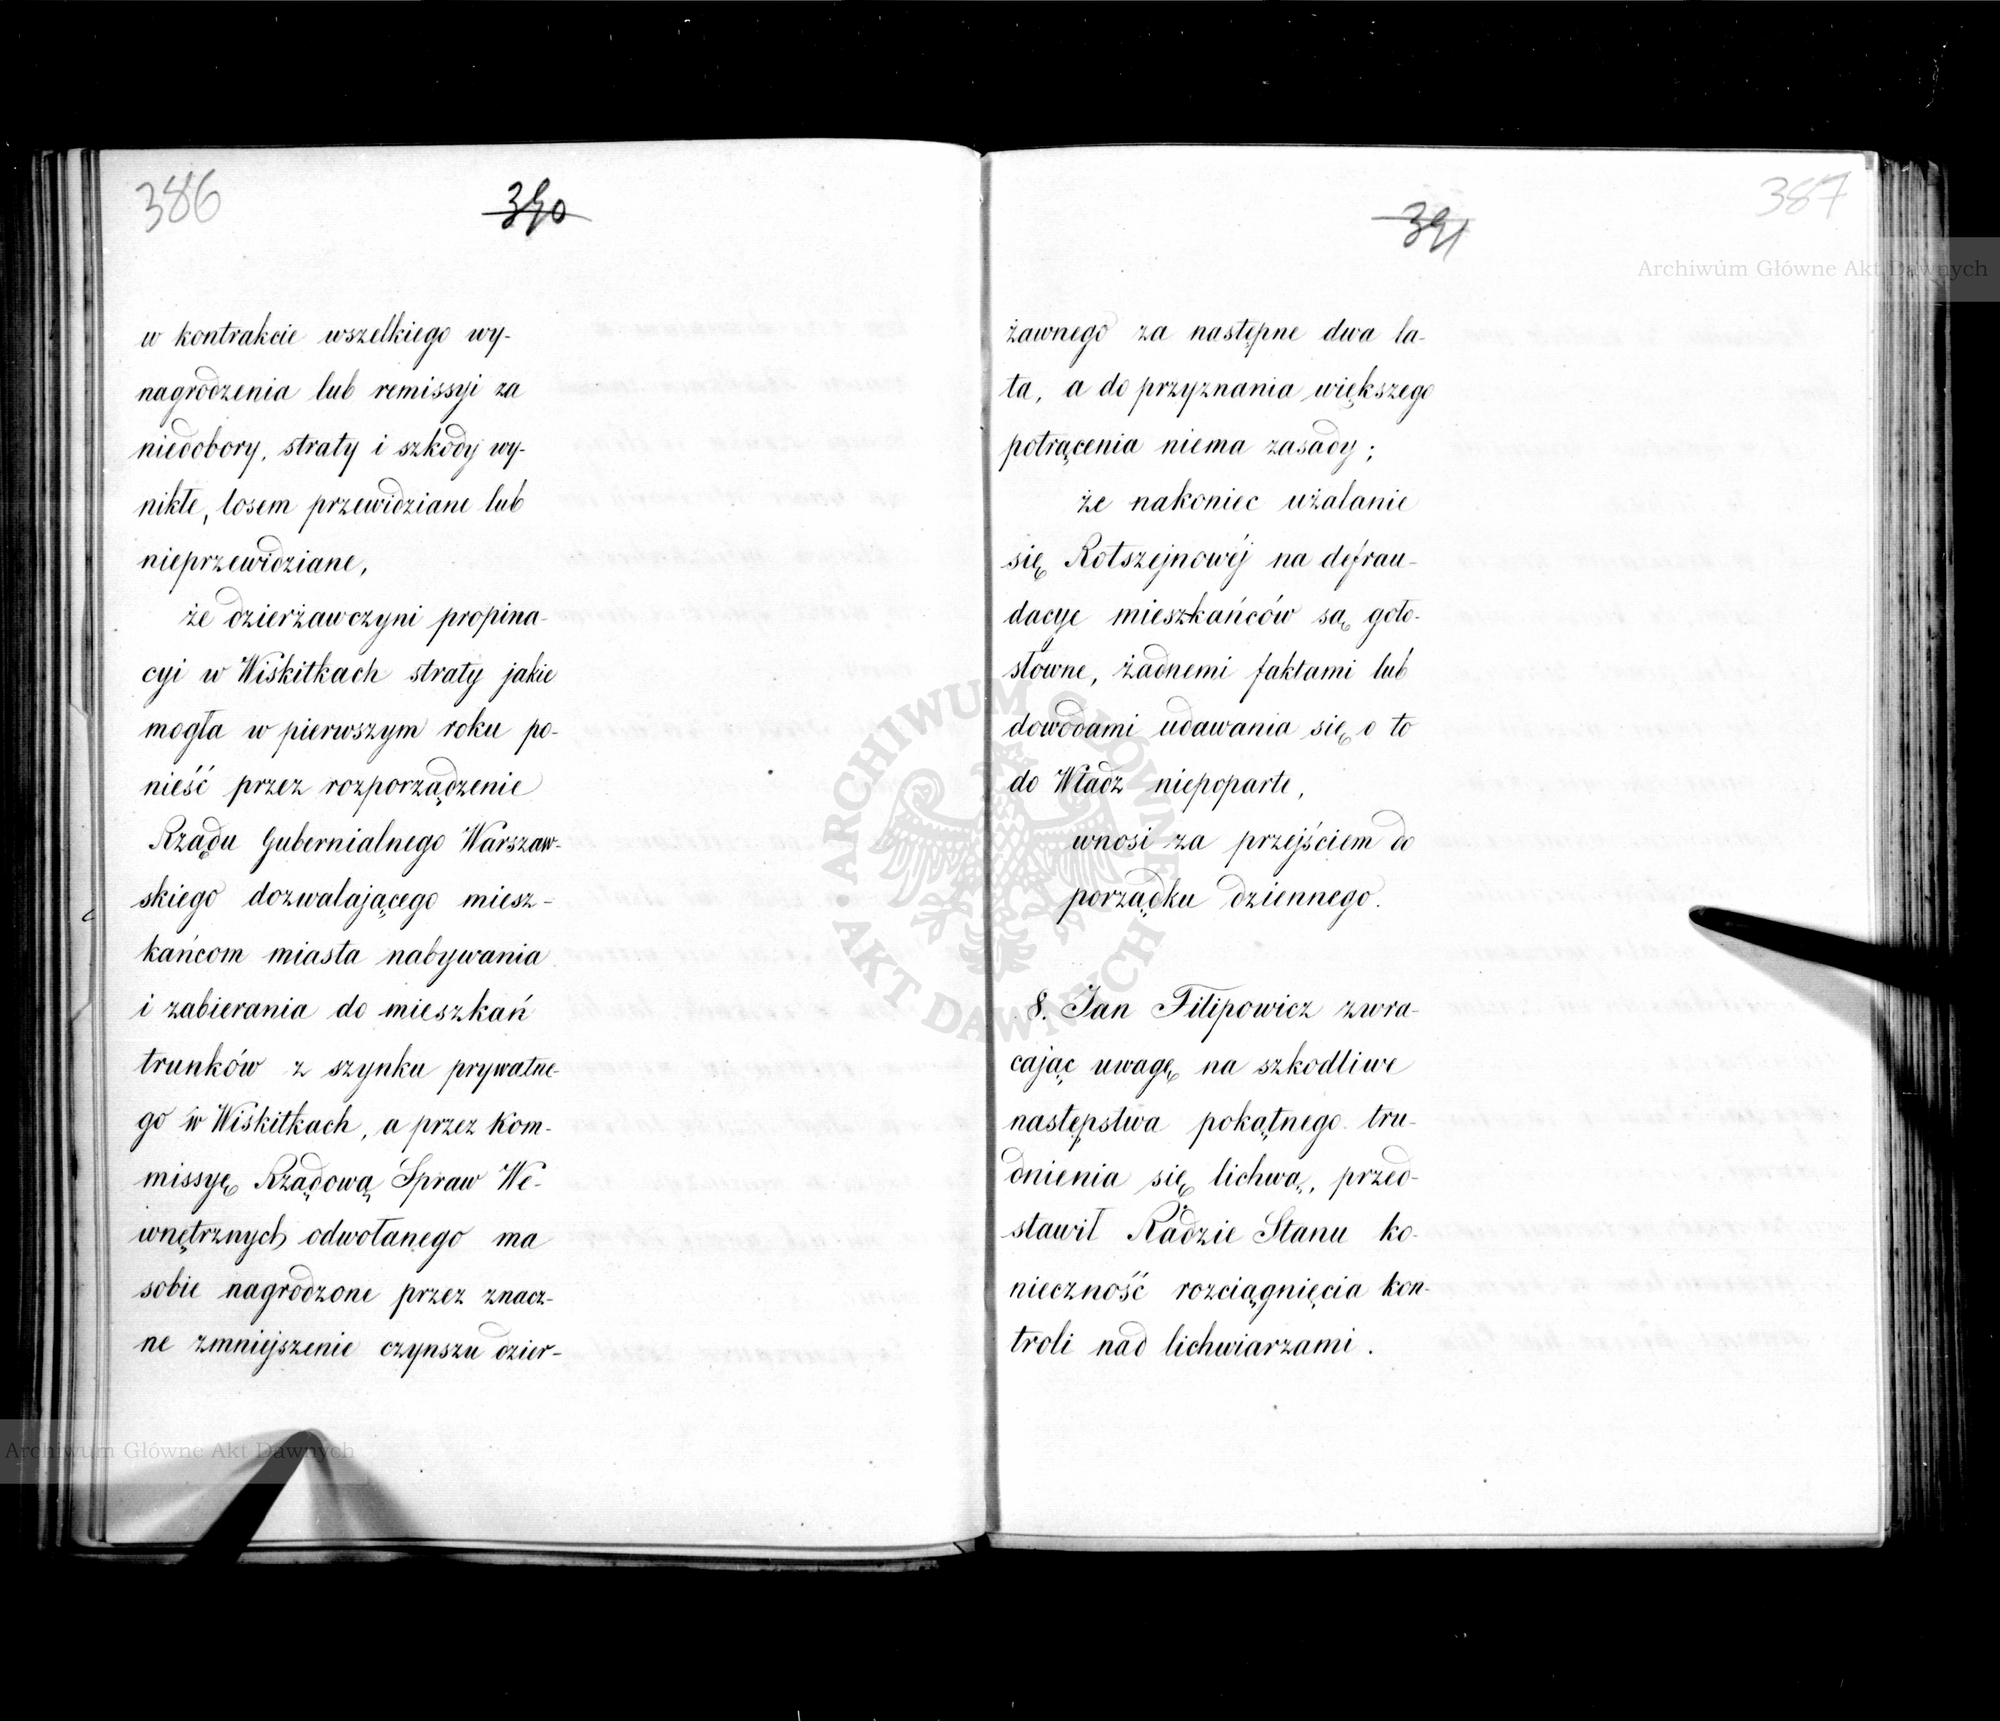 386
390
w kontrakcie wszelkiego wy-
nagrodzenia lub remissyi za
niedobory, straty i szkody wy-
nikłe, losem przewidziane lub
nieprzewidziane,
że dzierżawczyni propina-
cyi w Wiskitkach straty jakie
mogła w pierwszym roku po-
nieść przez rozporządzenie
Rządu Gubernialnego Warszaw-
skiego dozwalającego miesz-
kańcom miasta nabywania
i zabierania do mieszkań
trunków z szynku prywatne-
go w Wiskitkach, a przez Kom-
missyę Rządową Spraw We-
wnętrznych odwołanego ma
sobie nagrodzone przez znacz-
ne zmniejszenie czynszu dzier-
387
391
żawnego za następne dwa la-
ta, a do przyznania większego
potrącenia niema zasady;
że nakoniec użalanie
się Rotszejnowéj na defrau-
dacye mieszkańców są goło-
słowne, żadnemi faktami lub
dowodami udawania się o to
do Władz niepoparte,
wnosi za przejściem do
porządku dziennego.
8. Jan Filipowicz zwra-
cając uwagę na szkodliwe
następstwa pokątnego tru-
dnienia się lichwą, przed-
stawił Radzie Stanu ko-
nieczność rozciągnięcia kon-
troli nad lichwiarzami.
Archiwum Główne Akt Dawnych
Archiwum Główne Akt Dawnych
ARCHIWUM GŁÓWNE
AKT DAWNYCH